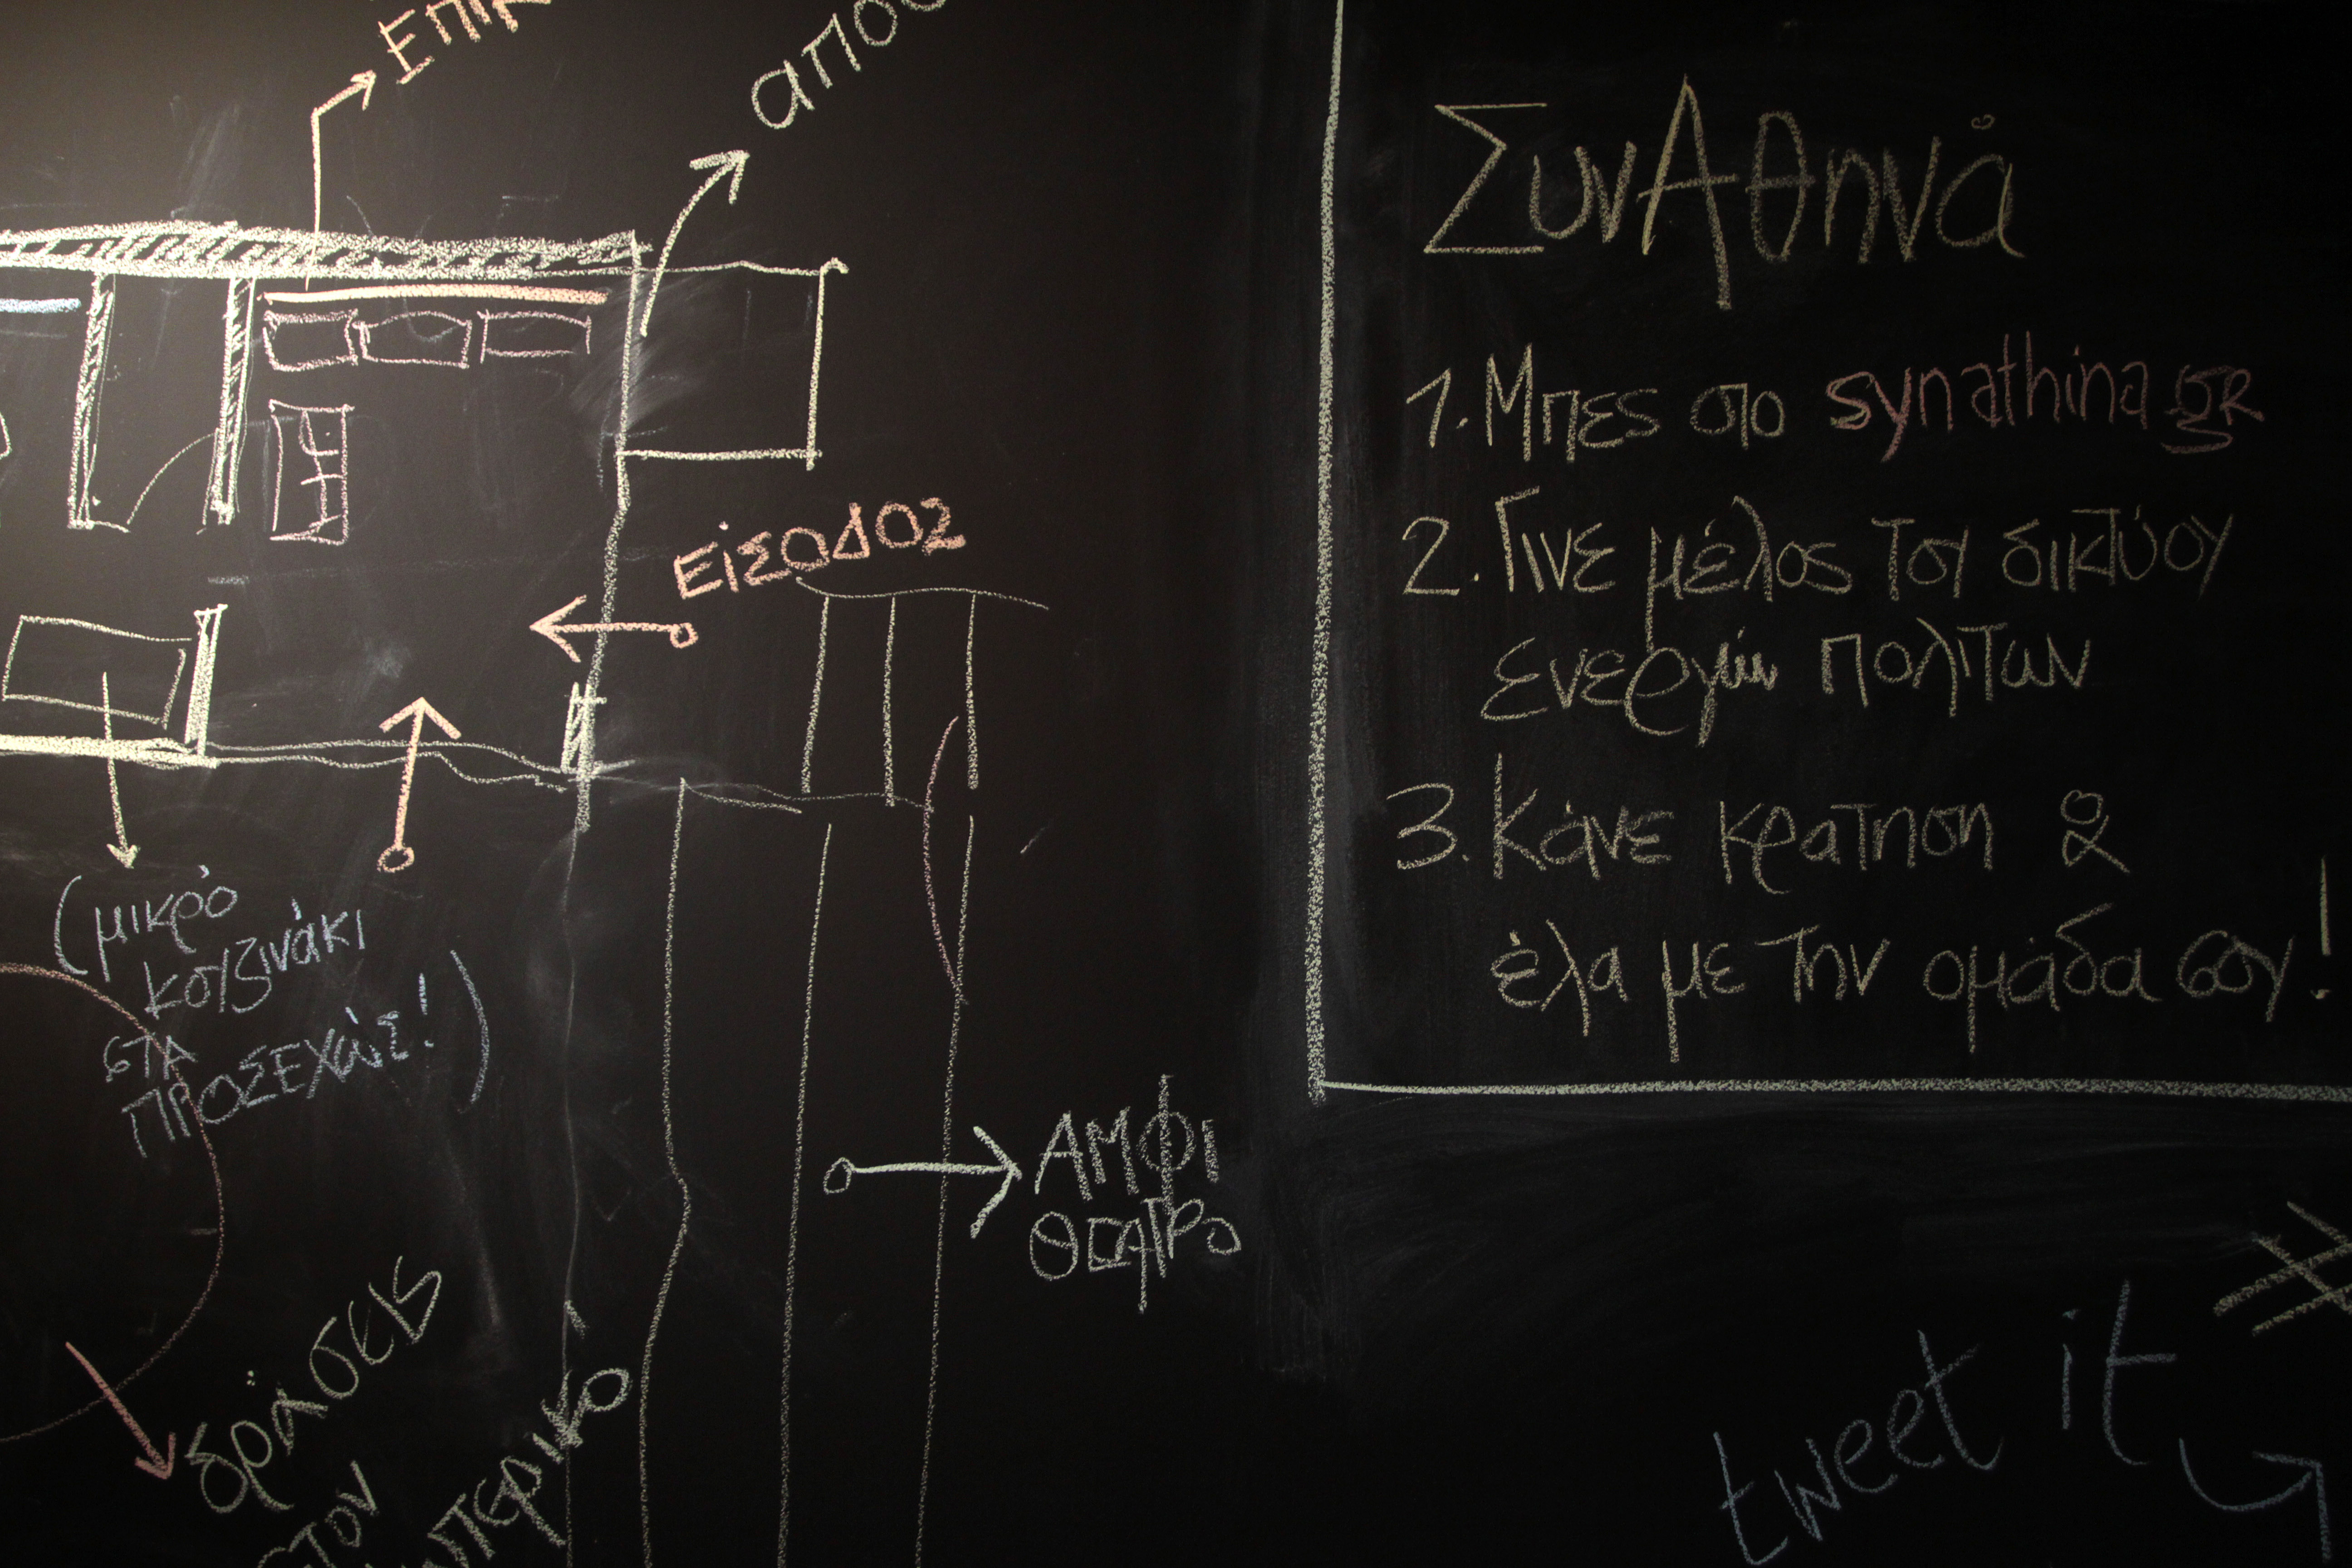 ΕΠΙΚ
αποθ
ΕίΣΟΔΟΣ
(μικρό
κουζινάκι
στΑ
ΠΡΟΣΕΧώΣ!)
ΑΜΦΙ
ΘΕΑΤΡΟ
δράσεις
στον
ωτερικό
ΣυνΑθηνά
1. Μπες στο synathina.gr
2. Γίνε μέλος του δικτύου
ενεργών πολιτών
3. Κάνε κρατηση &
έλα με την ομάδα σου!
#
tweet it